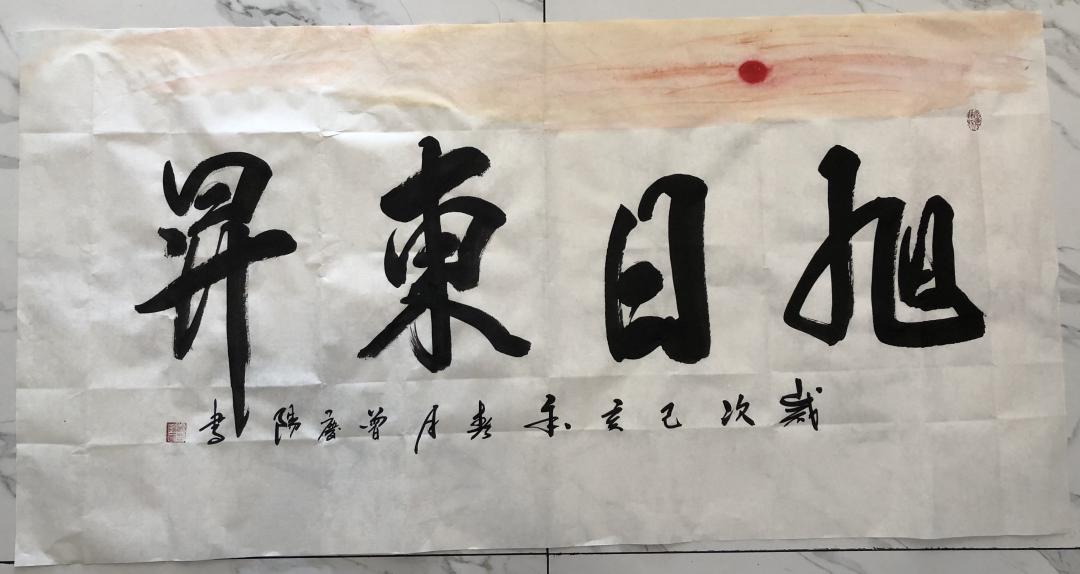 旭日東昇
歲次己亥年春月曾慶陽書